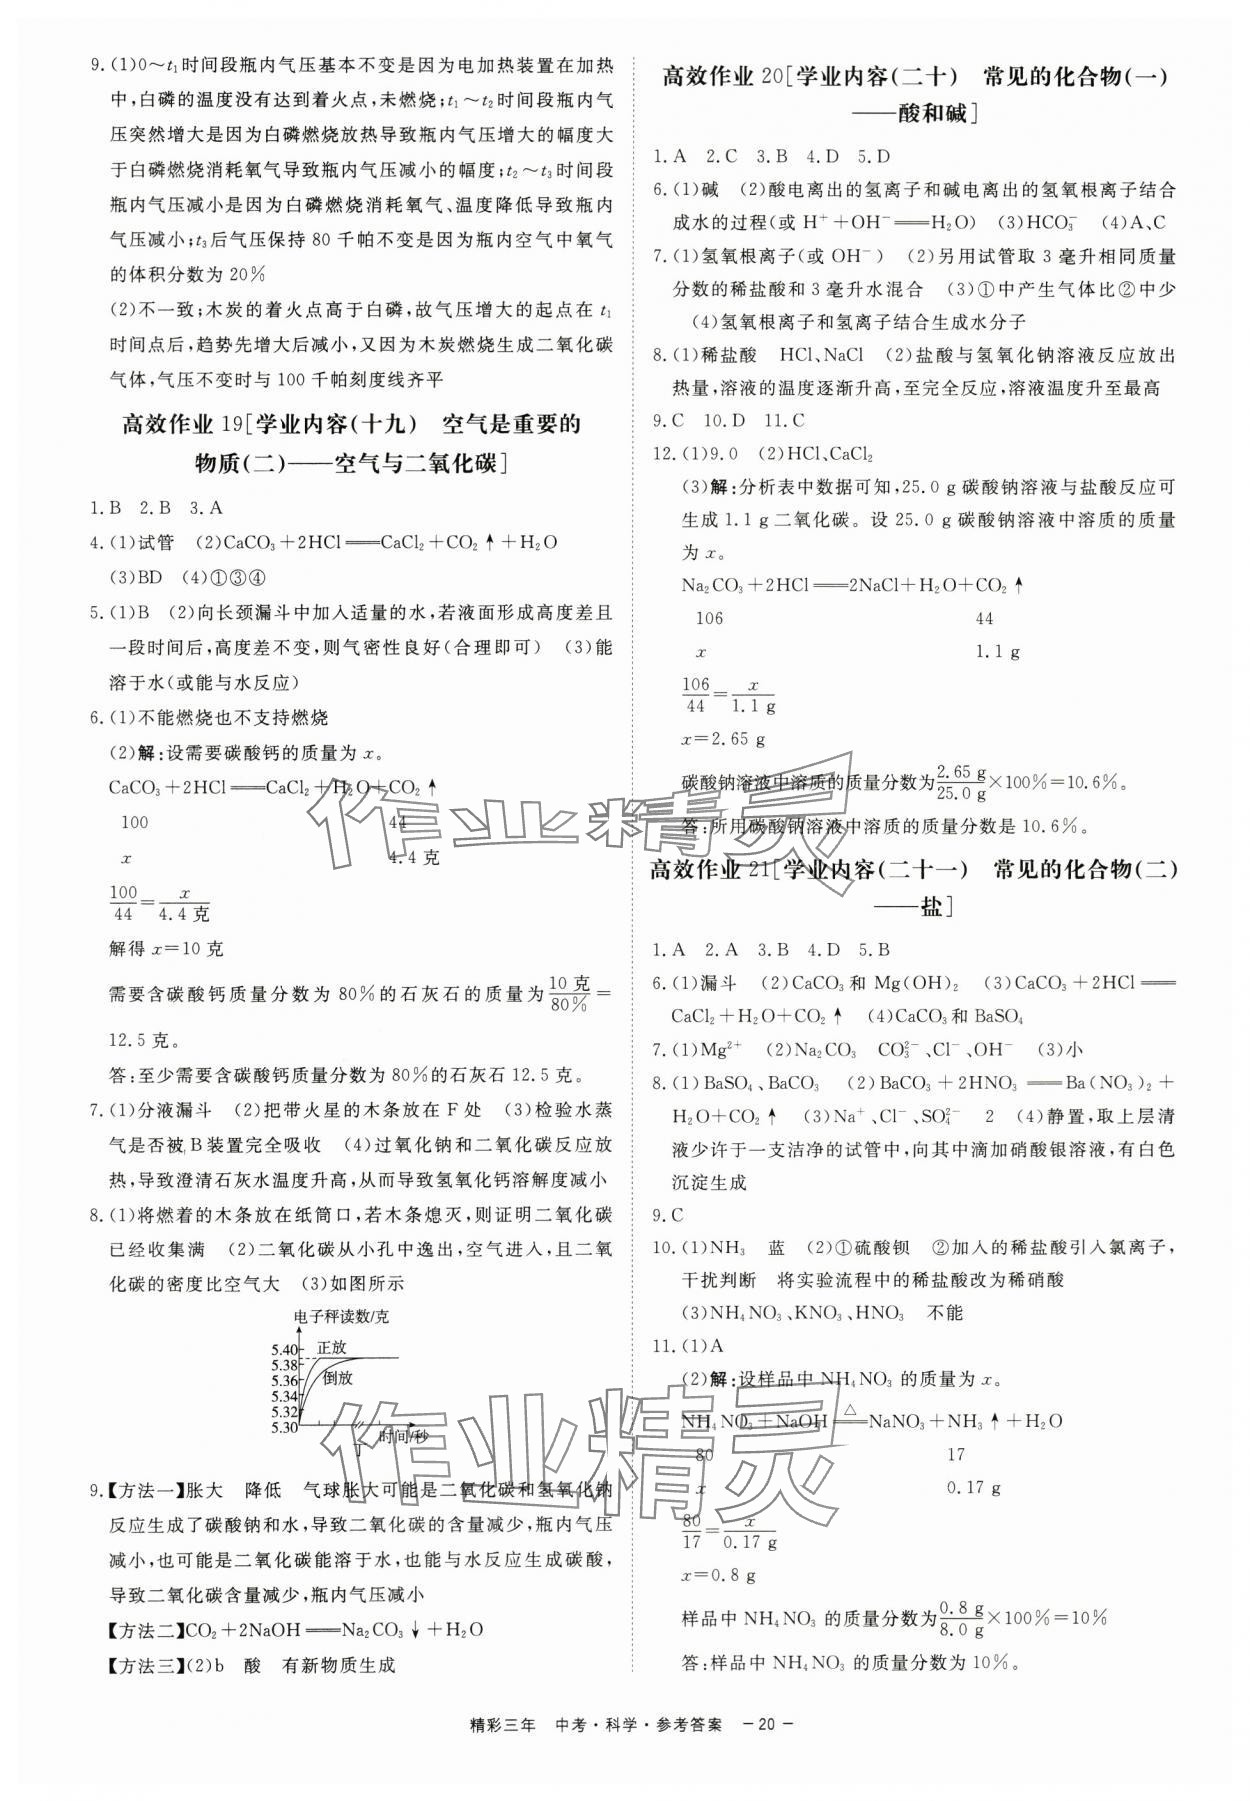 9.(1)0～t₁时间段瓶内气压基本不变是因为电加热装置在加热
中,白磷的温度没有达到着火点,未燃烧;t₁～t₂时间段瓶内气
压突然增大是因为白磷燃烧放热导致瓶内气压增大的幅度大
于白磷燃烧消耗氧气导致瓶内气压减小的幅度;t₂～t₃时间段
瓶内气压减小是因为白磷燃烧消耗氧气、温度降低导致瓶内
气压减小;t₃后气压保持80千帕不变是因为瓶内空气中氧气
的体积分数为20%
(2)不一致;木炭的着火点高于白磷,故气压增大的起点在t₁
时间点后,趋势先增大后减小,又因为木炭燃烧生成二氧化碳
气体,气压不变时与100千帕刻度线齐平
高效作业19[学业内容(十九) 空气是重要的
物质(二)——空气与二氧化碳]
1.B 2.B 3.A
4.(1)试管 (2)CaCO₃+2HCl══CaCl₂+CO₂↑+H₂O
(3)BD (4)①③④
5.(1)B (2)向长颈漏斗中加入适量的水,若液面形成高度差且
一段时间后,高度差不变,则气密性良好(合理即可) (3)能
溶于水(或能与水反应)
6.(1)不能燃烧也不支持燃烧
(2)解:设需要碳酸钙的质量为x。
CaCO₃+2HCl══CaCl₂+H₂O+CO₂↑
100 44
x 4.4克
100/44=x/4.4克
解得x=10克
需要含碳酸钙质量分数为80%的石灰石的质量为10克/80%=
12.5克。
答:至少需要含碳酸钙质量分数为80%的石灰石12.5克。
7.(1)分液漏斗 (2)把带火星的木条放在F处 (3)检验水蒸
气是否被B装置完全吸收 (4)过氧化钠和二氧化碳反应放
热,导致澄清石灰水温度升高,从而导致氢氧化钙溶解度减小
8.(1)将燃着的木条放在纸筒口,若木条熄灭,则证明二氧化碳
已经收集满 (2)二氧化碳从小孔中逸出,空气进入,且二氧
化碳的密度比空气大 (3)如图所示
电子秤读数/克
5.40 正放
5.38
5.36 倒放
5.34
5.32
5.30 时间/秒
丁
9.【方法一】胀大 降低 气球胀大可能是二氧化碳和氢氧化钠
反应生成了碳酸钠和水,导致二氧化碳的含量减少,瓶内气压
减小,也可能是二氧化碳能溶于水,也能与水反应生成碳酸,
导致二氧化碳含量减少,瓶内气压减小
【方法二】CO₂+2NaOH══Na₂CO₃↓+H₂O
【方法三】(2)b 酸 有新物质生成
高效作业20[学业内容(二十) 常见的化合物(一)
——酸和碱]
1.A 2.C 3.B 4.D 5.D
6.(1)碱 (2)酸电离出的氢离子和碱电离出的氢氧根离子结合
成水的过程(或H⁺+OH⁻══H₂O) (3)HCO₃⁻ (4)A、C
7.(1)氢氧根离子(或OH⁻) (2)另用试管取3毫升相同质量
分数的稀盐酸和3毫升水混合 (3)①中产生气体比②中少
(4)氢氧根离子和氢离子结合生成水分子
8.(1)稀盐酸 HCl、NaCl (2)盐酸与氢氧化钠溶液反应放出
热量,溶液的温度逐渐升高,至完全反应,溶液温度升至最高
9.C 10.D 11.C
12.(1)9.0 (2)HCl、CaCl₂
(3)解:分析表中数据可知,25.0 g碳酸钠溶液与盐酸反应可
生成1.1 g二氧化碳。设25.0 g碳酸钠溶液中溶质的质量
为x。
Na₂CO₃+2HCl══2NaCl+H₂O+CO₂↑
106 44
x 1.1 g
106/44=x/1.1 g
x=2.65 g
碳酸钠溶液中溶质的质量分数为2.65 g/25.0 g×100%=10.6%。
答:所用碳酸钠溶液中溶质的质量分数是10.6%。
高效作业21[学业内容(二十一) 常见的化合物(二)
——盐]
1.A 2.A 3.B 4.D 5.B
6.(1)漏斗 (2)CaCO₃和Mg(OH)₂ (3)CaCO₃+2HCl══
CaCl₂+H₂O+CO₂↑ (4)CaCO₃和BaSO₄
7.(1)Mg²⁺ (2)Na₂CO₃ CO₃²⁻、Cl⁻、OH⁻ (3)小
8.(1)BaSO₄、BaCO₃ (2)BaCO₃+2HNO₃══Ba(NO₃)₂+
H₂O+CO₂↑ (3)Na⁺、Cl⁻、SO₄²⁻ 2 (4)静置,取上层清
液少许于一支洁净的试管中,向其中滴加硝酸银溶液,有白色
沉淀生成
9.C
10.(1)NH₃ 蓝 (2)①硫酸钡 ②加入的稀盐酸引入氯离子,
干扰判断 将实验流程中的稀盐酸改为稀硝酸
(3)NH₄NO₃、KNO₃、HNO₃ 不能
11.(1)A
(2)解:设样品中NH₄NO₃的质量为x。
NH₄NO₃+NaOH═△═NaNO₃+NH₃↑+H₂O
80 17
x 0.17 g
80/17=x/0.17 g
x=0.8 g
样品中NH₄NO₃的质量分数为0.8 g/8.0 g×100%=10%
答:样品中NH₄NO₃的质量分数为10%。
精彩三年 中考·科学·参考答案 －20－
作业精灵
作业精灵